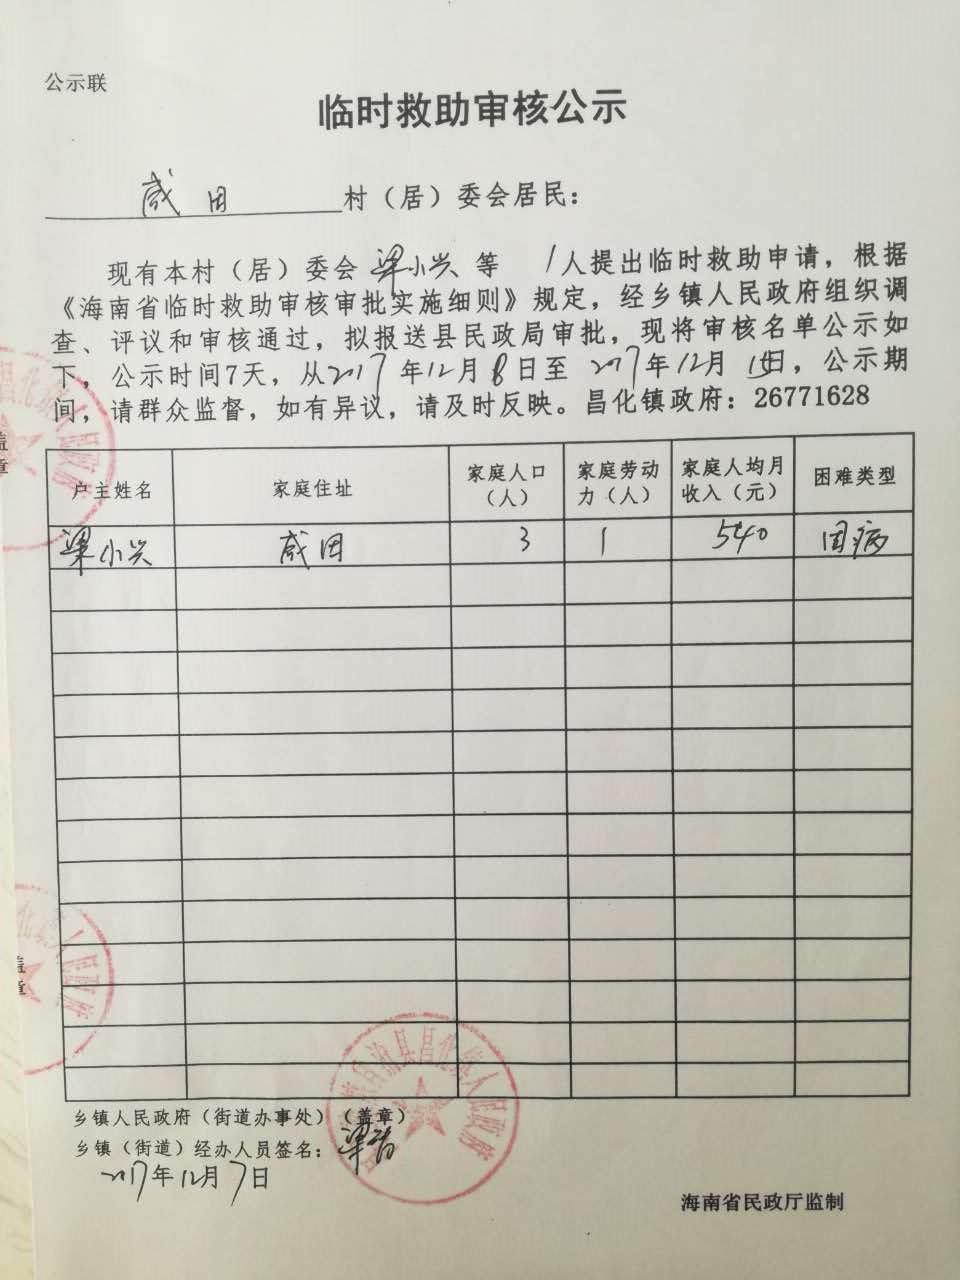 公示联
临时救助审核公示
咸田村（居）委会居民：
现有本村（居）委会梁小兴等 1人提出临时救助申请，根据
《海南省临时救助审核审批实施细则》规定，经乡镇人民政府组织调
查、评议和审核通过，拟报送县民政局审批，现将审核名单公示如
下，公示时间7天，从2017年12月8日至2017年12月15日，公示期
间，请群众监督，如有异议，请及时反映。昌化镇政府：26771628
户主姓名 家庭住址 家庭人口（人） 家庭劳动力（人） 家庭人均月收入（元） 困难类型
梁小兴 咸田 3 1 540 因病
盖章
盖章
乡镇人民政府（街道办事处）（盖章）
乡镇（街道）经办人员签名：
2017年12月7日
海南省民政厅监制